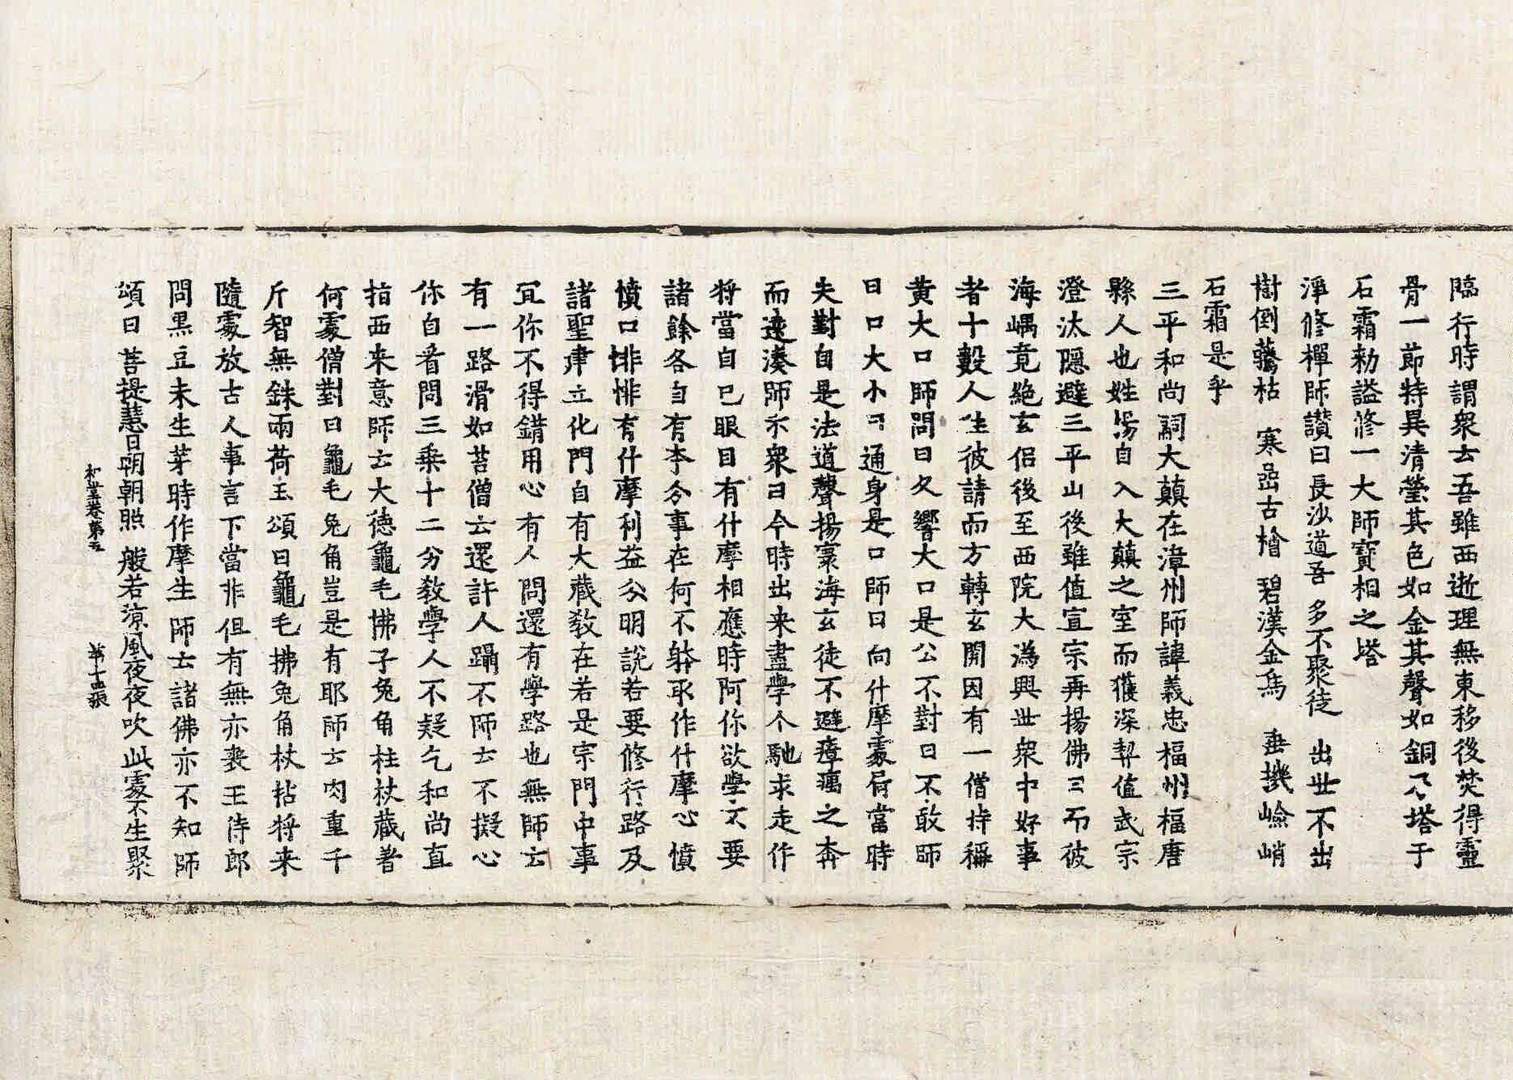 臨行時謂衆云吾雖西逝理無東移後焚得靈
骨一節特異清瑩其色如金其聲如銅乃塔于
石霜勑謚修一大師寶相之塔
淨修禪師讚曰長沙道吾 多不聚徒 出世不出
樹倒藤枯 寒嵓古檜 碧漢金烏 垂機嶮峭
石霜是乎
三平和尚嗣大顛在漳州師諱義忠福州福唐
縣人也姓楊自入大顛之室而獲深契值武宗
澄汰隱避三平山後雖值宣宗再揚佛日而彼
海嵎竟絶玄侶後至西院大潙興世衆中好事
者十數人往彼請而方轉玄開因有一僧持稱
黃大口師問曰久響大口是公不對曰不敢師
曰口大小曰通身是口師曰向什摩處屙當時
失對自是法道聲揚寰海玄徒不避瘴癘之奔
而遠湊師示衆曰今時出来盡學个馳求走作
将當自己眼目有什摩相應時阿你欲學不要
諸餘各自有本分事在何不體取作什摩心憤
憤口悱悱有什摩利益分明說若要修行路及
諸聖建立化門自有大藏教在若是宗門中事
冝你不得錯用心有人問還有學路也無師云
有一路滑如苔僧云還許人躡不師云不擬心
你自看問三乗十二分教學人不疑乞和尚直
指西来意師云大德龜毛拂子兔角柱杖藏著
何處僧對曰龜毛兔角豈是有耶師云肉重千
斤智無銖兩荷玉頌曰龜毛拂兔角杖拈将来
隨處放古人事言下當非但有無亦喪王侍郎
問黑豆未生芽時作摩生師云諸佛亦不知師
頌曰菩提慧日朝朝照 般若涼風夜夜吹 此處不生聚
和世卷第五 第十四張